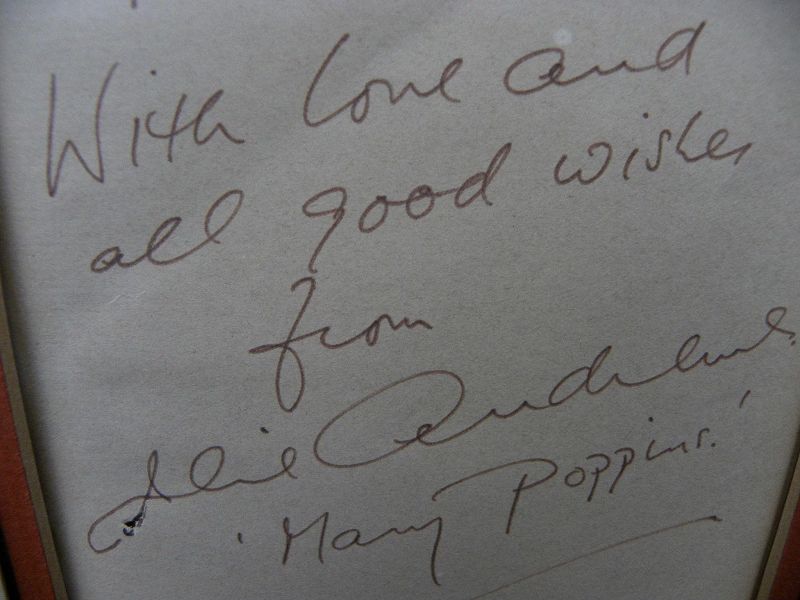 With love and
all good wishes
from
Julie Andrews.
'Mary Poppins.'